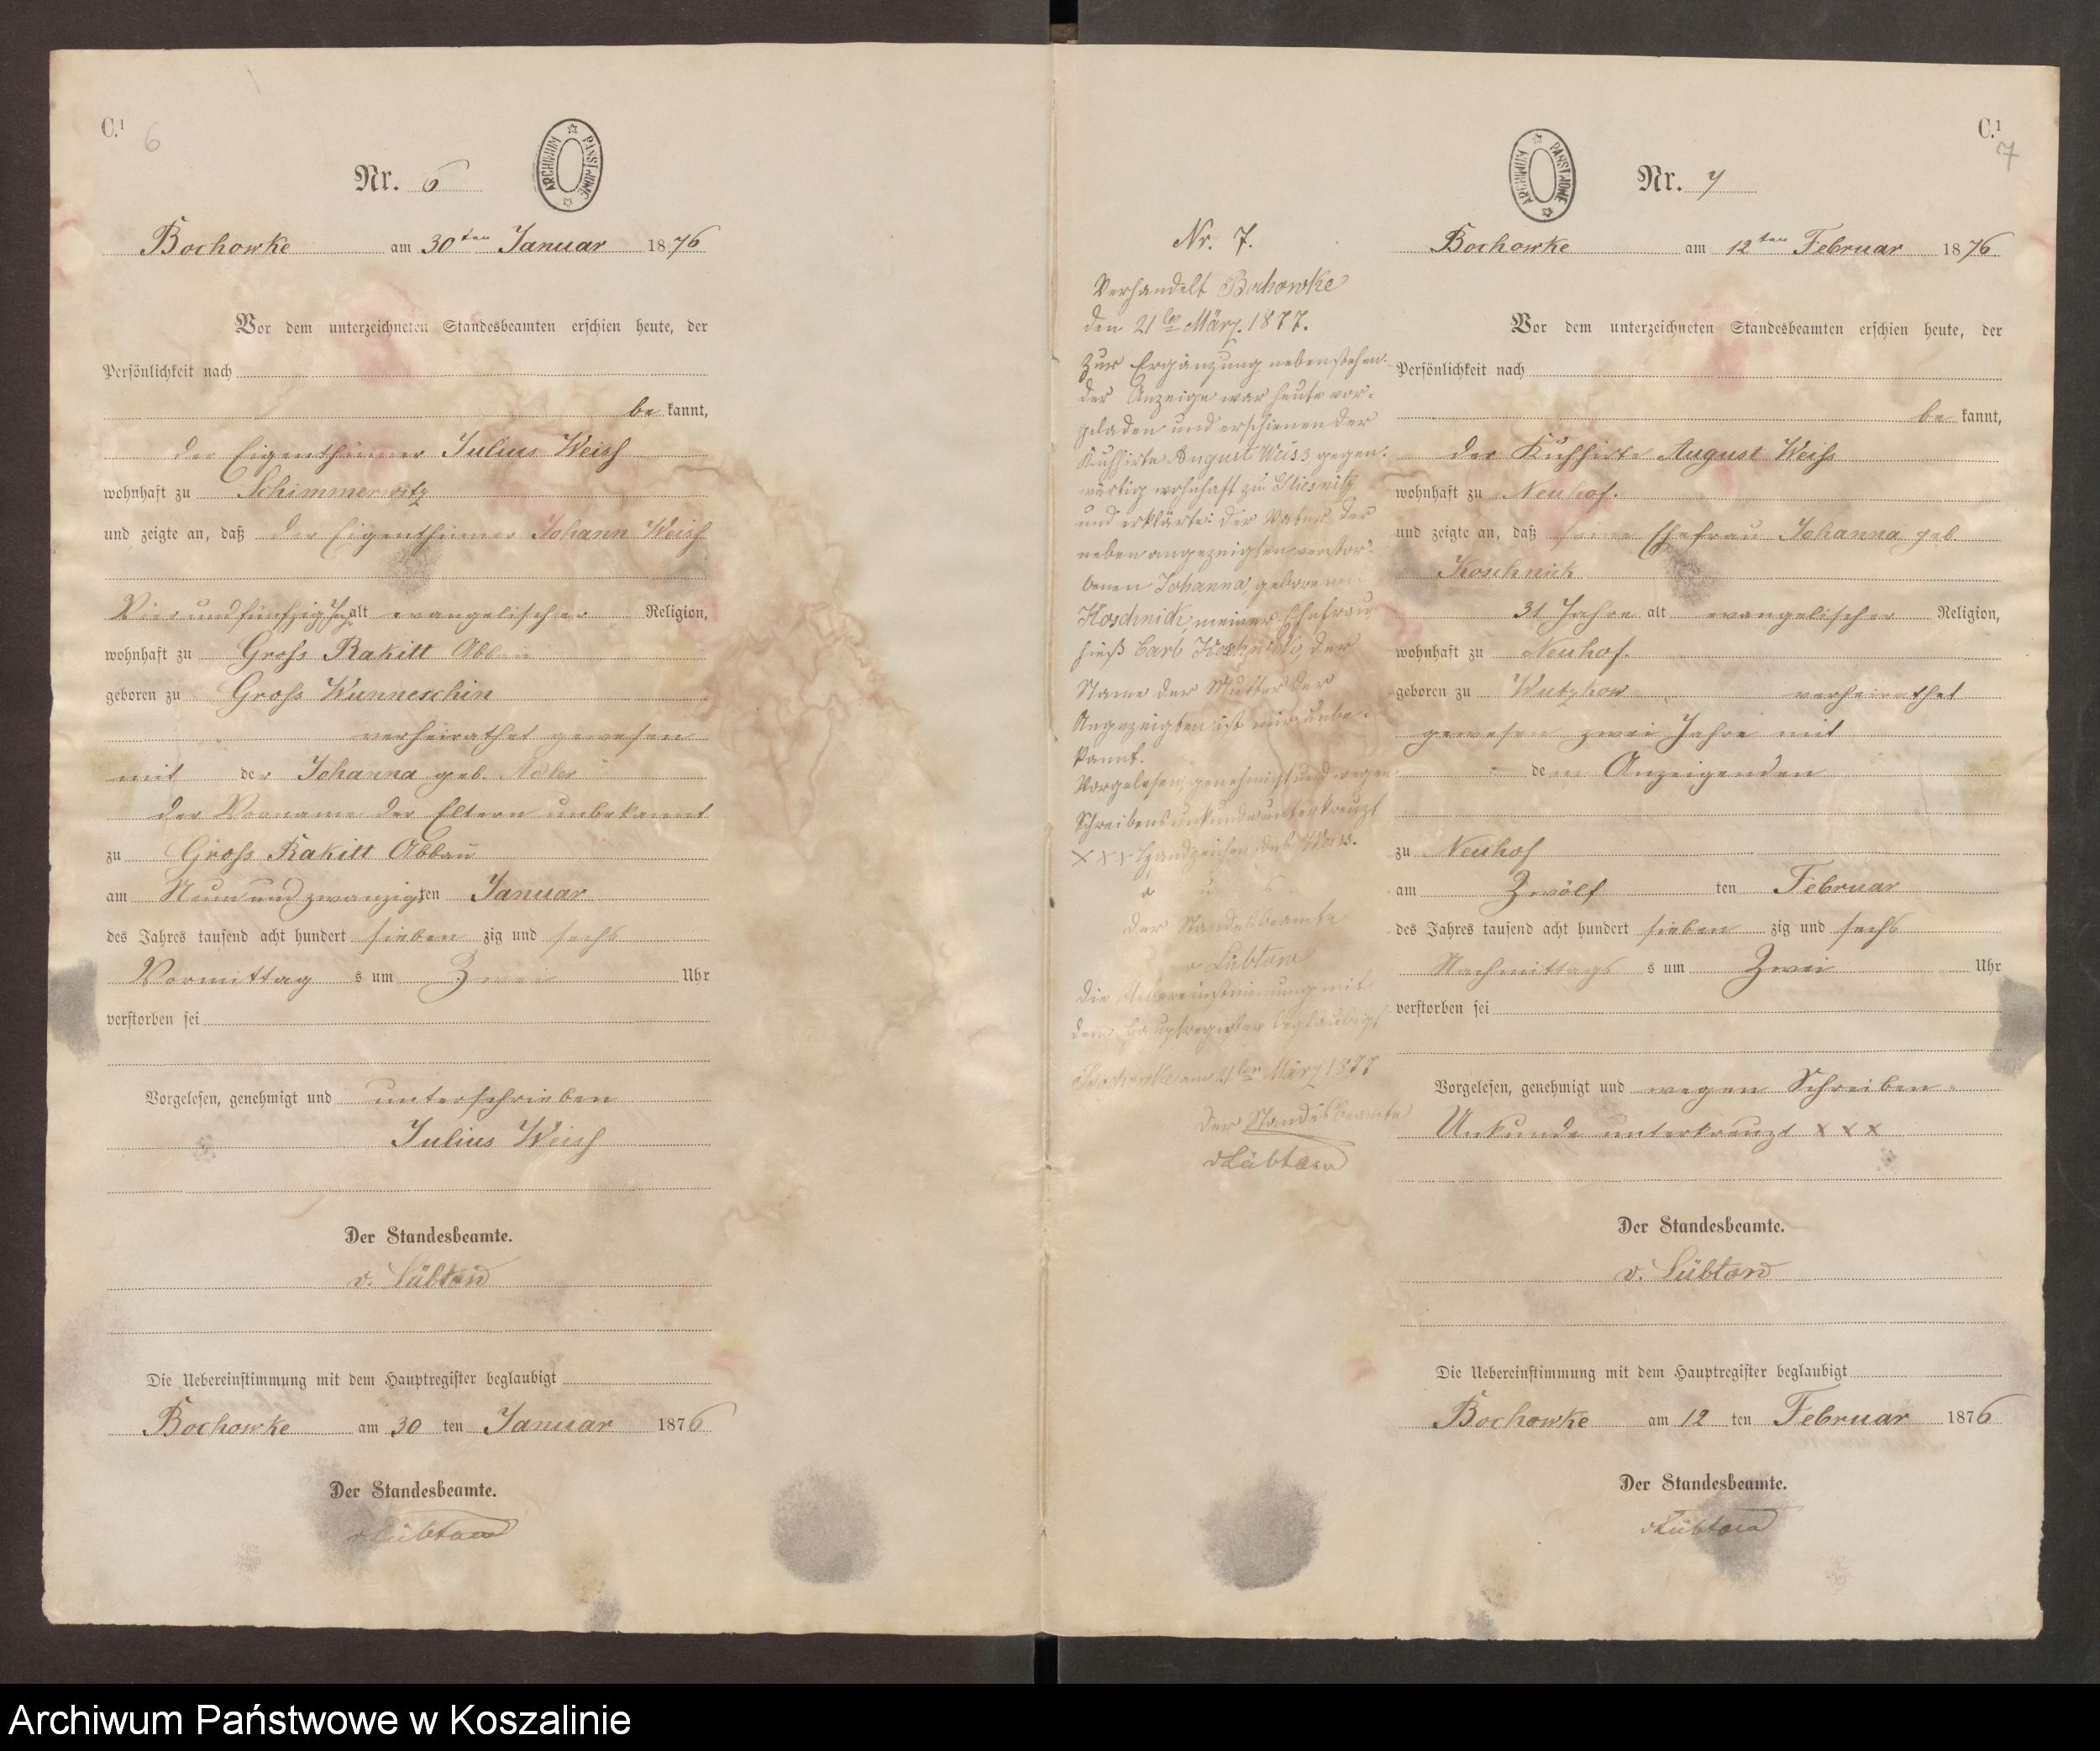 C.¹
6
ARCHIWUM PAŃSTWOWE
Nr. 6
Bochowke am 30ten Januar 1876
Vor dem unterzeichneten Standesbeamten erschien heute, der
Persönlichkeit nach
be kannt,
der Eigenthümer Julius Weiß
wohnhaft zu Schimmerwitz
und zeigte an, daß der Eigenthümer Johann Weiß
Vier und fünfzig Jahr alt evangelischer Religion,
wohnhaft zu Gross Rakitt Abbau
geboren zu Gross Wunneschin
verheirathet gewesen
mit der Johanna geb. Adler
der Vorname der Eltern unbekannt
zu Gross Rakitt Abbau
am Neun und zwanzigten Januar
des Jahres tausend acht hundert sieben zig und sechs
Vormittag s um Zwei Uhr
verstorben sei
Vorgelesen, genehmigt und unterschrieben
Julius Weiß
Der Standesbeamte.
v. Lübtow
Die Uebereinstimmung mit dem Hauptregister beglaubigt
Bochowke am 30 ten Januar 1876
Der Standesbeamte.
vLübtow
Nr. 7.
Verhandelt Bochowke
den 21ten März 1877.
Zur Ergänzung nebenstehen-
der Anzeige war heute vor-
geladen und erschienen der
Kuhhirte August Weiss gegen-
wärtig wohnhaft zu
und erklärte: der Vater der
neben angezeigten verstor-
benen Johanna geborenen
Koschnick, meiner Ehefrau
hieß Carl Koschnick, der
Name der Mutter der
Angezeigten ist mir unbe-
kannt.
Vorgelesen, genehmigt und wegen
Schreibensunkunde unterkreuzt
XXX Handzeichen des Weiss.
Der Standesbeamte
v Lübtow
Die Uebereinstimmung mit
dem Hauptregister beglaubigt
Bochowke am 21ten März 1877
Der Standesbeamte
vLübtow
C.¹
7
ARCHIWUM PAŃSTWOWE
Nr. 7
Bochowke am 12ten Februar 1876
Vor dem unterzeichneten Standesbeamten erschien heute, der
Persönlichkeit nach
be kannt,
der Kuhhirte August Weiss
wohnhaft zu Neuhof.
und zeigte an, daß seine Ehefrau Johanna geb.
Koschnick
31 Jahre alt evangelischer Religion,
wohnhaft zu Neuhof.
geboren zu Wutzkow verheirathet
gewesen zwei Jahre mit
dem Anzeigenden
zu Neuhof
am Zwölf ten Februar
des Jahres tausend acht hundert sieben zig und sechs
Nachmittags s um Zwei Uhr
verstorben sei
Vorgelesen, genehmigt und wegen Schreiben-
Unkunde unterkreuzt XXX
Der Standesbeamte.
v. Lübtow
Die Uebereinstimmung mit dem Hauptregister beglaubigt
Bochowke am 12 ten Februar 1876
Der Standesbeamte.
vLübtow
Archiwum Państwowe w Koszalinie